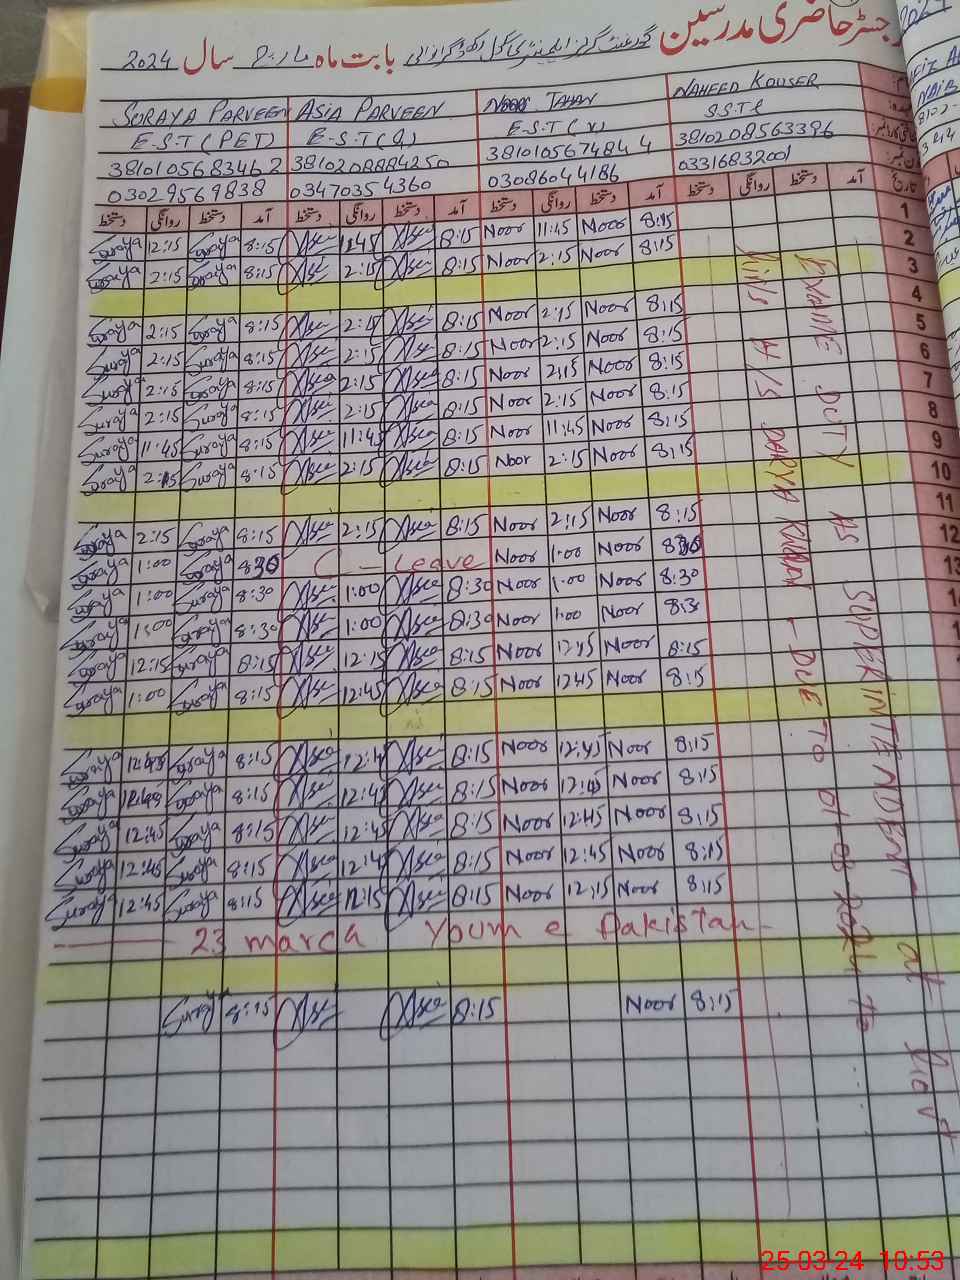 رجسٹر حاضری مدرسین گورنمنٹ گرلز بابت ماہ مارچ سال 2024
SURAYA PARVEEN ASIA PARVEEN Noor JAHAN NAHEED KOUSER
E.S.T (PET) E.S.T (Q) E.S.T (V) S.S.T
3810105683462 3810208884250 3810105674844 3810208563396
03029569838 03470354360 03086044186 03316832001
دستخط روانگی دستخط آمد دستخط روانگی دستخط آمد دستخط روانگی دستخط آمد دستخط روانگی دستخط آمد تاریخ
Suraya 12:15 Suraya 8:15 Asia 11:45 Asia 8:15 Noor 11:45 Noor 8:15 1
Suraya 2:15 Suraya 8:15 Asia 2:15 Asia 8:15 Noor 2:15 Noor 8:15 2
3
Suraya 2:15 Suraya 8:15 Asia 2:15 Asia 8:15 Noor 2:15 Noor 8:15 4
Suraya 2:15 Suraya 8:15 Asia 2:15 Asia 8:15 Noor 2:15 Noor 8:15 5
Suraya 2:15 Suraya 8:15 Asia 2:15 Asia 8:15 Noor 2:15 Noor 8:15 6
Suraya 2:15 Suraya 8:15 Asia 2:15 Asia 8:15 Noor 2:15 Noor 8:15 7
Suraya 11:45 Suraya 8:15 Asia 11:45 Asia 8:15 Noor 11:45 Noor 8:15 8
Suraya 2:15 Suraya 8:15 Asia 2:15 Asia 8:15 Noor 2:15 Noor 8:15 9
10
Suraya 2:15 Suraya 8:15 Asia 2:15 Asia 8:15 Noor 2:15 Noor 8:15 11
Suraya 1:00 Suraya 8:30 C - Leave Noor 1:00 Noor 8:30 12
Suraya 1:00 Suraya 8:30 Asia 1:00 Asia 8:30 Noor 1:00 Noor 8:30 13
Suraya 1:00 Suraya 8:30 Asia 1:00 Asia 8:30 Noor 1:00 Noor 8:30
Suraya 12:15 Suraya 8:15 Asia 12:15 Asia 8:15 Noor 12:15 Noor 8:15
Suraya 1:00 Suraya 8:15 Asia 12:45 Asia 8:15 Noor 12:45 Noor 8:15
Suraya 12:45 Suraya 8:15 Asia 12:4 Asia 8:15 Noor 12:45 Noor 8:15
Suraya 12:45 Suraya 8:15 Asia 12:45 Asia 8:15 Noor 12:45 Noor 8:15
Suraya 12:45 Suraya 8:15 Asia 12:45 Asia 8:15 Noor 12:45 Noor 8:15
Suraya 12:45 Suraya 8:15 Asia 12:45 Asia 8:15 Noor 12:45 Noor 8:15
Suraya 12:45 Suraya 8:15 Asia 12:15 Asia 8:15 Noor 12:15 Noor 8:15
23 march Youm e Pakistan
Suraya 8:15 Asia Asia 8:15 Noor 8:15
EXAME DUTY AS SUPERINTENDENT at Govt
Girls H/S DARYA KHAN - DUE TO 01-03-2024 to
25-03-24 10:53